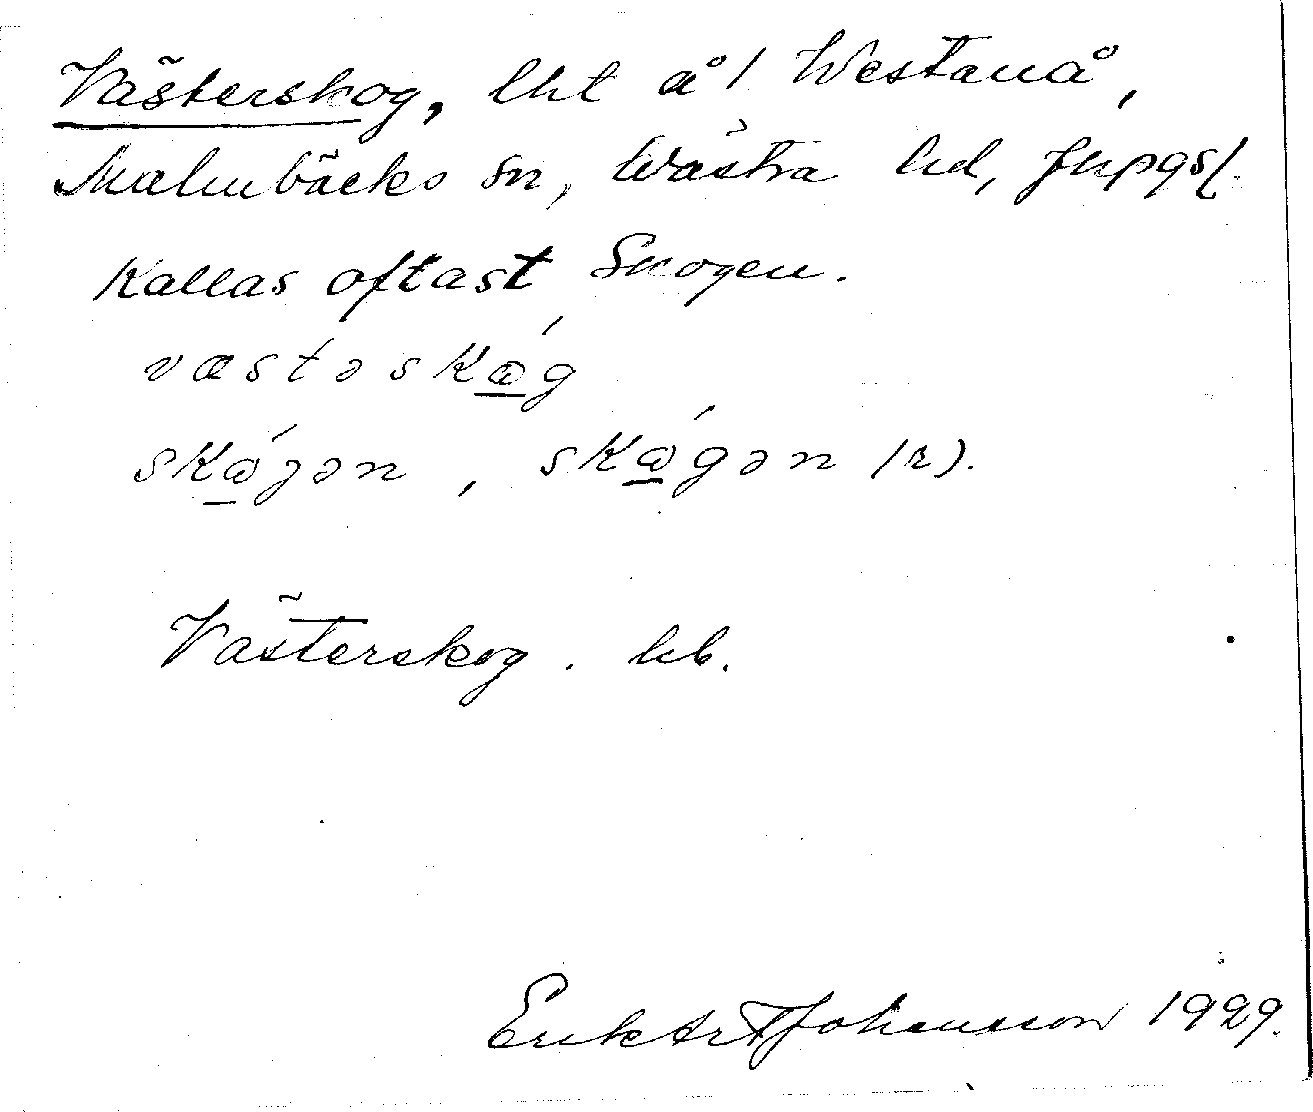 Västerskog, lht å / Westanå,
Malmbäcks sn, Västra hd, Jkpgs l.
Kallas oftast Skogen.
væstəskώ̱g
skώ̱gən, skώ̱gən (r).
Västerskog. hb.
Erik Art Johansson 1929.